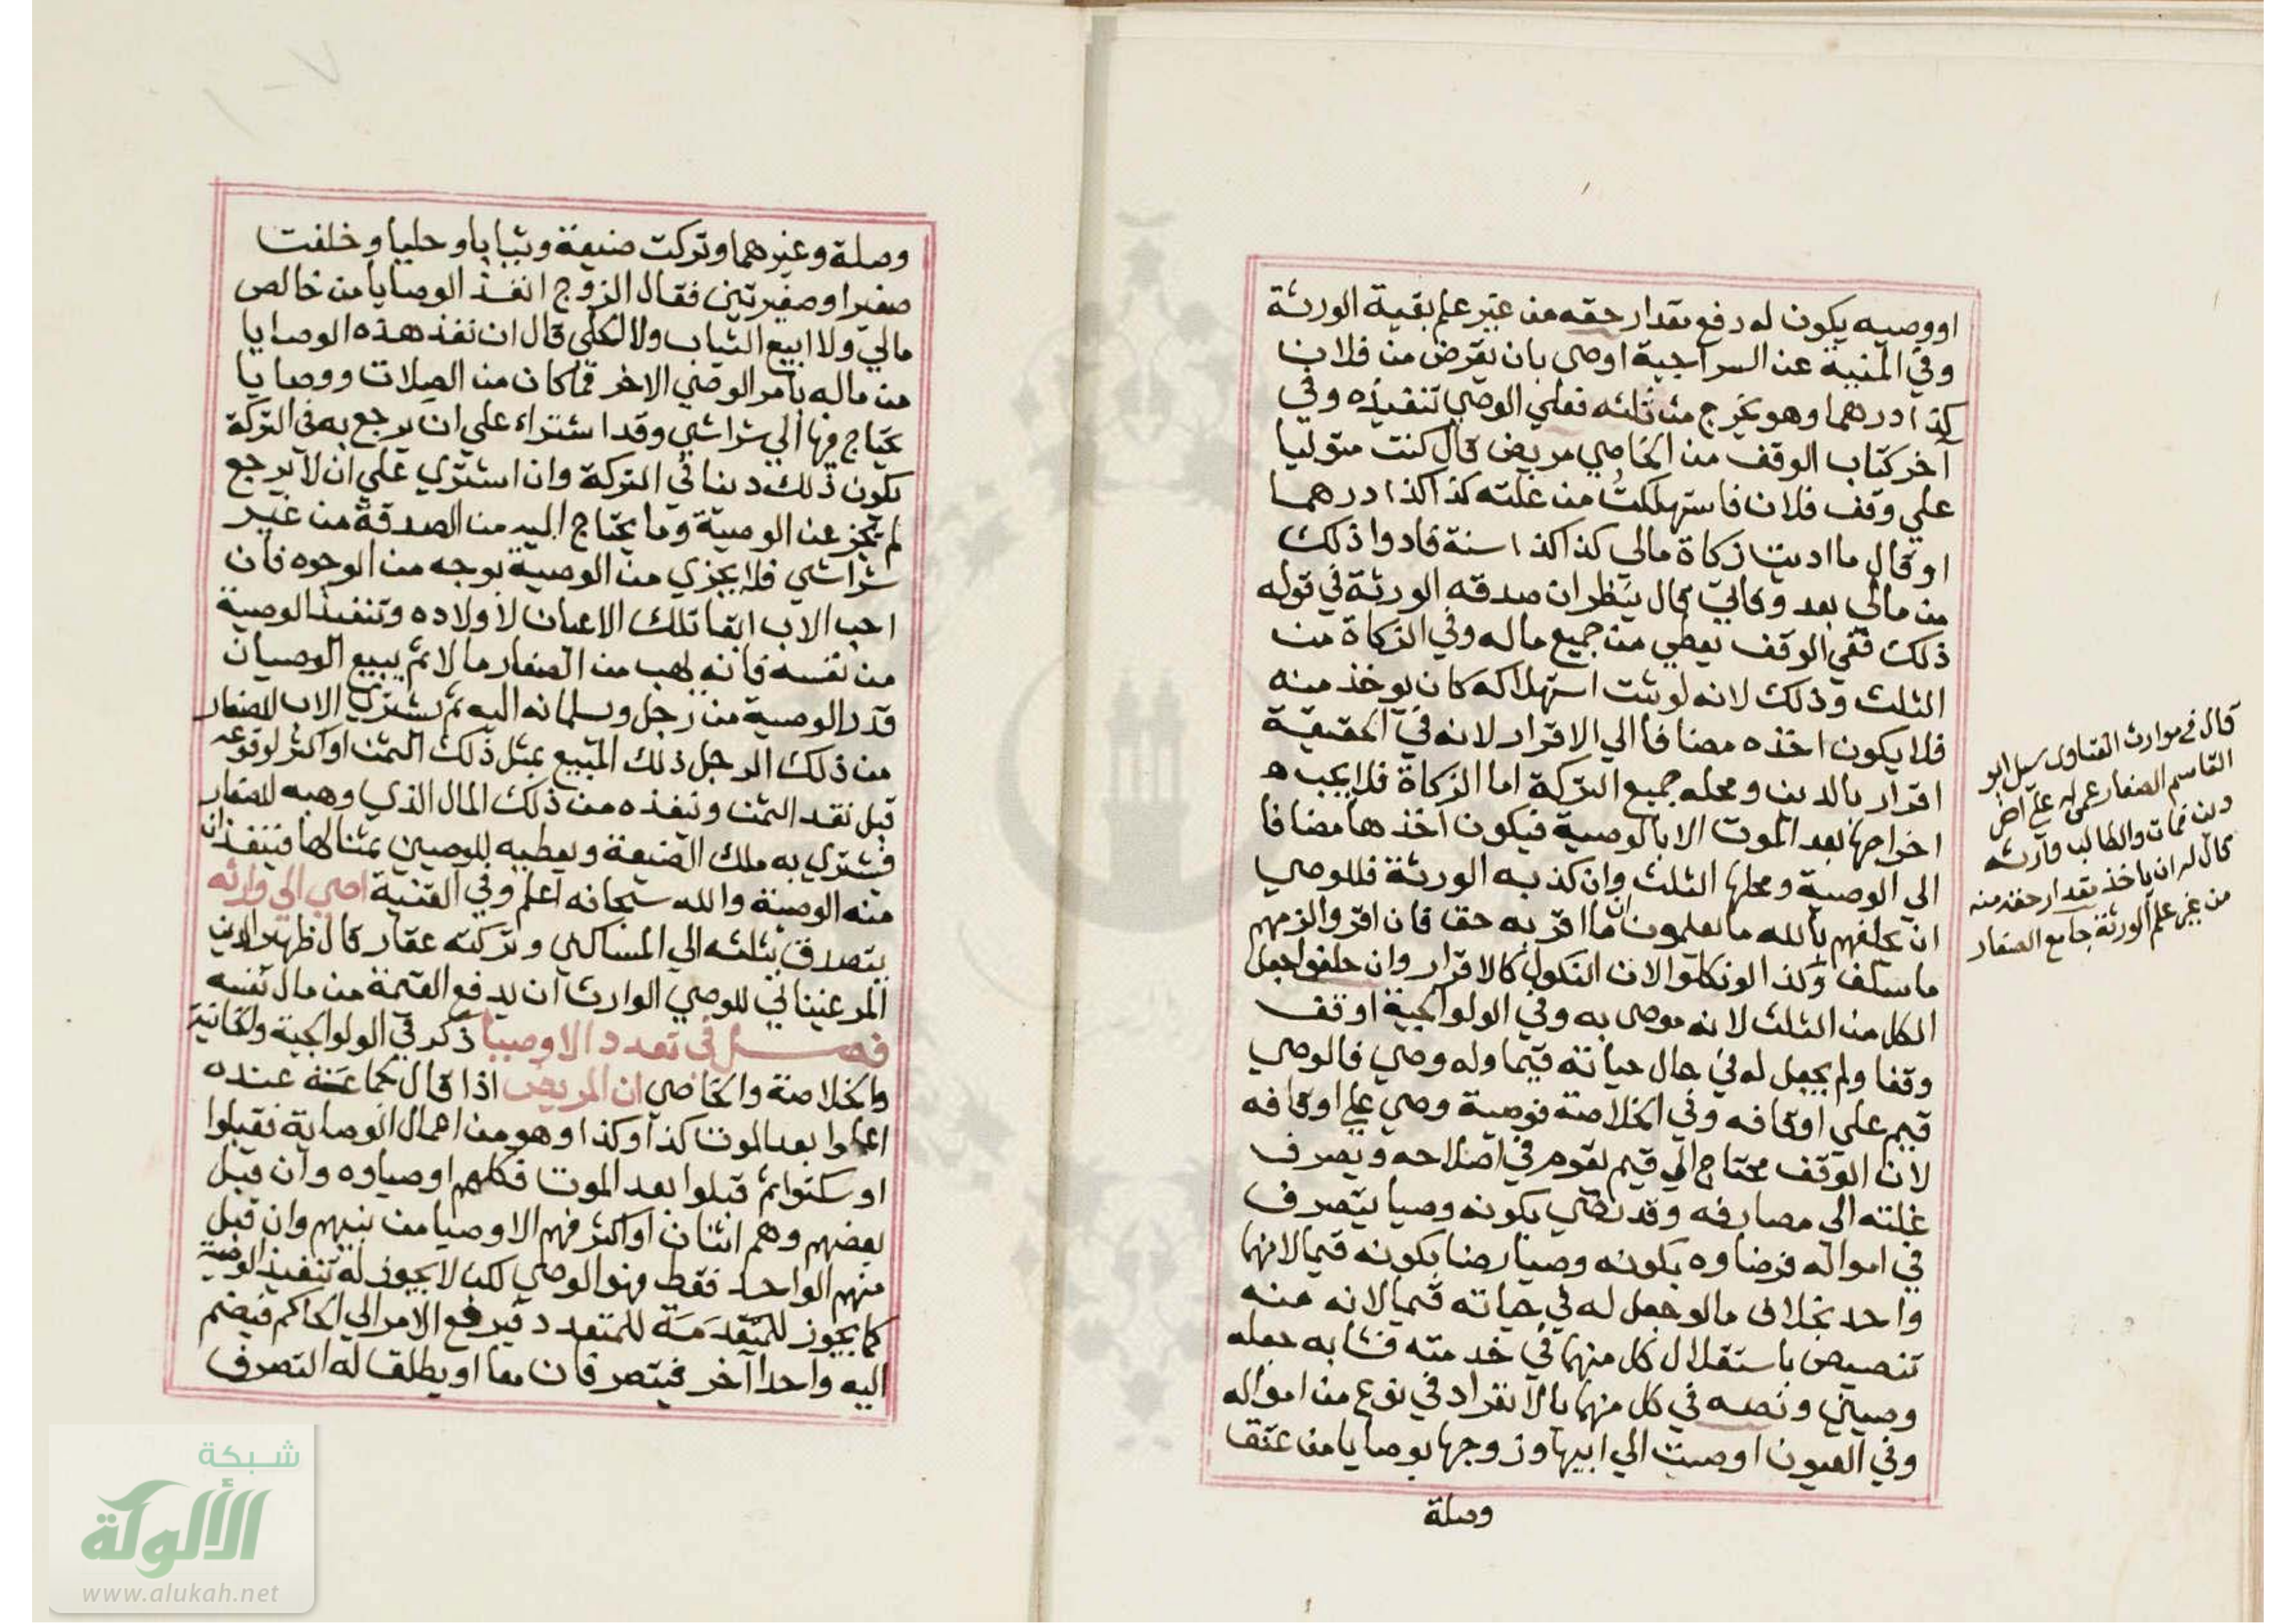 او وصيه يكون له دفع بقدار حقه من غير علم بقية الورثة
وفي المنية عن السراجية اوصى بان يقرض من فلان
كذا درهما وهو يخرج من ثلثه فعلي الوصي تنفيذه وفي
آخر كتاب الوقف من الخاصي مريض قال كنت متوليا
علي وقف فلان فاستهلكت من غلته كذا كذا درهما
او قال ما اديت زكاة مالي كذا كذا سنة فادوا ذلك
من مالي بعد وفاتي قال ينظر ان صدقه الورثة في قوله
ذلك ففي الوقف يعطي من جميع ماله وفي الزكاة من
الثلث وذلك لانه لو ثبت استهلاكه كان يوخذ منه
فلا يكون اخذه مضافا الي الاقرار لانه في الحقيقة
اقرار بالدين ومحله جميع التركة اما الزكاة فلا يجب
اخراجها بعد الموت الا بالوصية فيكون اخذها مضافا
الي الوصية ومحلها الثلث وان كذبه الورثة فللوصي
ان يحلفهم بالله ما يعلمون ان ما اقر به حق فان اقروا الزمهم
ما سلف وكذا لو نكلوا لان النكول كالاقرار وان حلفوا جعل
الكل من الثلث لانه موصى به وفي الولوالجية اوقف
وقفا ولم يجعل له في حال حياته قيما وله وصي فالوصي
قيم علي اوقافه وفي الخلاصة فوصية وصي علي اوقافه
لان الوقف محتاج الي قيم يقوم في اصلاحه ويصرف
غلته الى مصارفه وقد رضي بكونه وصيا يتصرف
في امواله فرضاوه بكونه وصيا رضا بكونه قيما لانهما
واحد بخلاف ما لو جعل له في حياته قيما لانه منه
تنصيص باستقلال كل منهما في خدمته فشابه جعله
وصيين ونصه في كل منهما بالانفراد في نوع من امواله
وفي العيون اوصت الي ابيها وزوجها بوصايا من عتق
وصلة
قال في موارث الفتاوى سيل ابو
القاسم الصفار عمن له علي اخر
دين فمات والطالب وارثه
قال له ان ياخذ بقدار حقه منه
من غير علم الورثة جامع الصغار
وصلة وغيرهما وتركت ضيعة وثيابا وحليا وخلفت
صغيرا وصغيرتين فقال الزوج انفذ الوصايا من خالص
مالي ولا ابيع الثياب ولا الحلي قال ان نفذ هذه الوصايا
من ماله بامر الوصي الاخر فما كان من الصلات ووصايا
يحتاج فيها الي شراشي وقد اشتراه علي ان يرجع به في التركة
يكون ذلك دينا في التركة وان اشتري علي ان لا يرجع
لم يجز عن الوصية وما يحتاج اليه من الصدقة من غير
شراشي فلا يجزي من الوصية بوجه من الوجوه فان
احب الاب ابقا تلك الاعيان لاولاده وتنفيذ الوصية
من نفسه فانه يهب من الصغار مالا ثم يبيع الوصيان
قدر الوصية من رجل ويسلمانه اليه ثم يشتري الاب للصغار
من ذلك الرجل ذلك المبيع بمثل ذلك الثمن او اكثر لوقوعه
قبل نقد الثمن وينفذه من ذلك المال الذي وهبه للصغار
فيشتري به ملك الضيعة ويعطيه للوصيين بمثالها فينفذان
منه الوصية والله سبحانه اعلم وفي القنية اوصي الي وارثه
بتصدق بثلثه الي المساكين وتركته عقار قال ظهير الدين
المرغيناني للوصي الوارث ان يدفع القيمة من مال نفسه
فصل في تعدد الاوصيا ذكر في الولوالجية والخانية
والخلاصة والخاصي ان المريض اذا قال لجماعة عنده
اعملوا بعد الموت كذا وكذا وهو من اعمال الوصاية فقبلوا
او سكتوا ثم قبلوا بعد الموت فكلهم اوصياوه وان قبل
بعضهم وهم اثنان او اكثر فهم الاوصيا من بينهم وان قبل
منهم الواحد فقط فهو الوصي لكن لا يجوز له تنفيذ الوصية
كما يجوز للمتقدمة للمتعدد فيرفع الامر الي الحاكم فيضم
اليه واحدا آخر فيتصرفان معا او يطلق له التصرف
شبكة
الألوكة
www.alukah.net